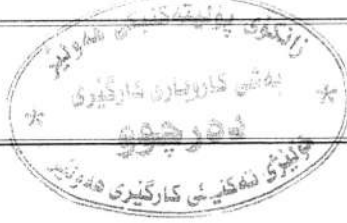 زانکۆی پۆلیتەکنیکی هەولێر
بەشی کاروباری کارگێری
دەرچوو
کۆلێژی تەکنیکی کارگێری هەولێر